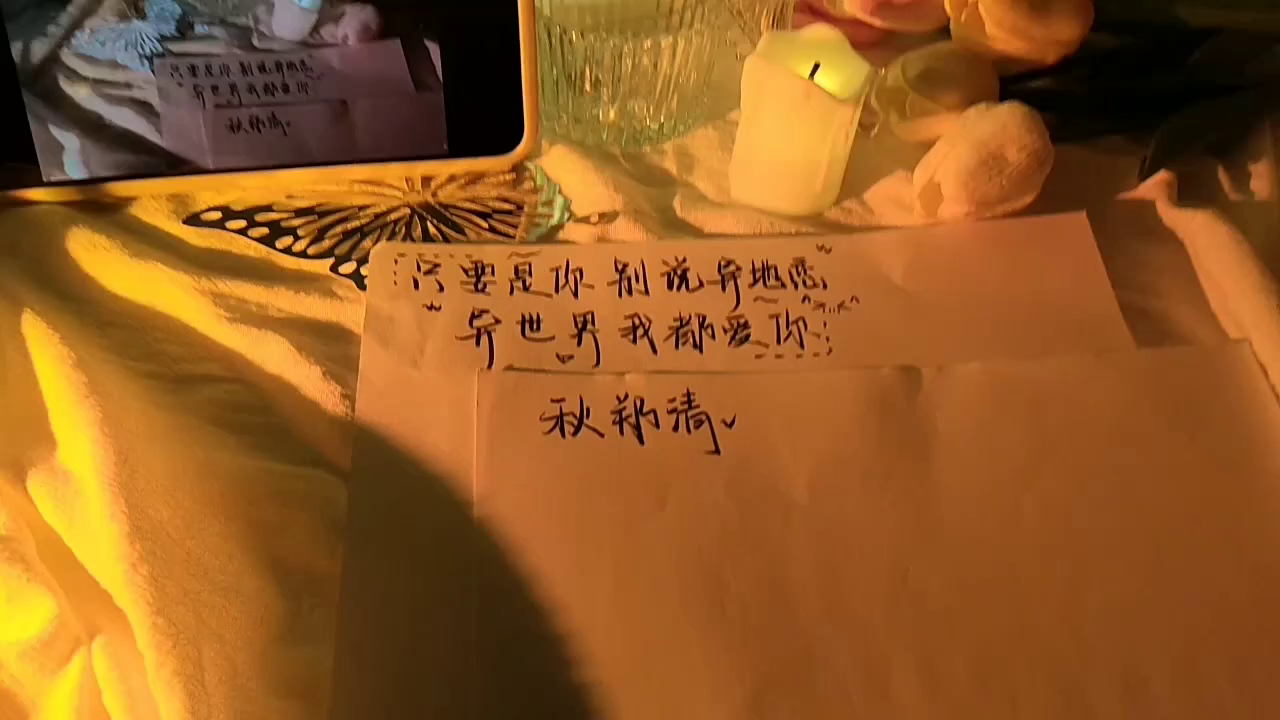 只要是你别说异地恋
异世界我都爱你
秋郑清
只要是你别说异地恋
异世界我都爱你
秋郑清